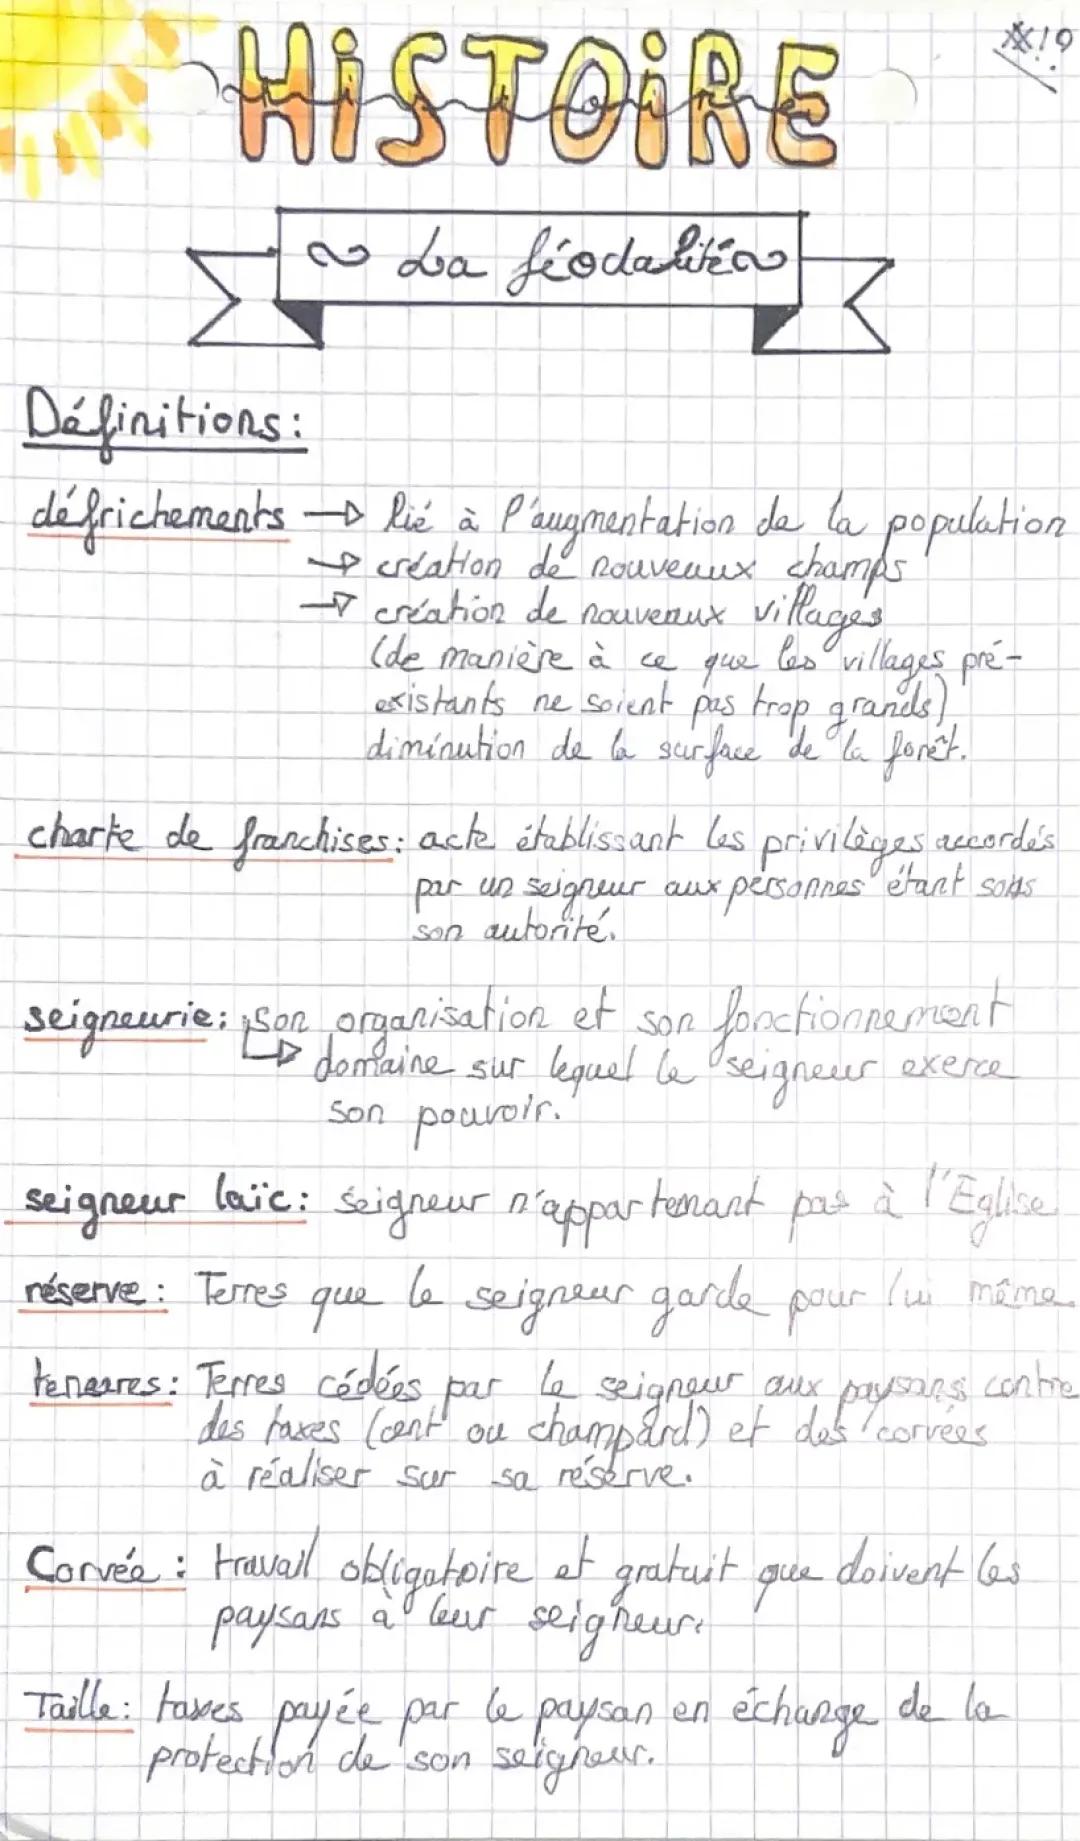 HiSTOiRE
La féodalité
Définitions:
défrichements → lié à l'augmentation de la population
→ création de nouveaux champs
→ création de nouveaux villages
(de manière à ce que les villages pré-
existants ne soient pas trop grands)
diminution de la surface de la forêt.
charte de franchises: acte établissant les privilèges accordés
par un seigneur aux personnes étant sous
son autorité.
seigneurie: son organisation et son fonctionnement
↳ domaine sur lequel le seigneur exerce
son pouvoir.
seigneur laïc: seigneur n'appartenant pas à l'Eglise
réserve: Terres que le seigneur garde pour lui même
tenures: Terres cédées par le seigneur aux paysans contre
des taxes (cent ou champard) et des corvées
à réaliser sur sa réserve.
Corvée: travail obligatoire et gratuit que doivent les
paysans à leur seigneur.
Taille: taxes payée par le paysan en échange de la
protection de son seigneur.